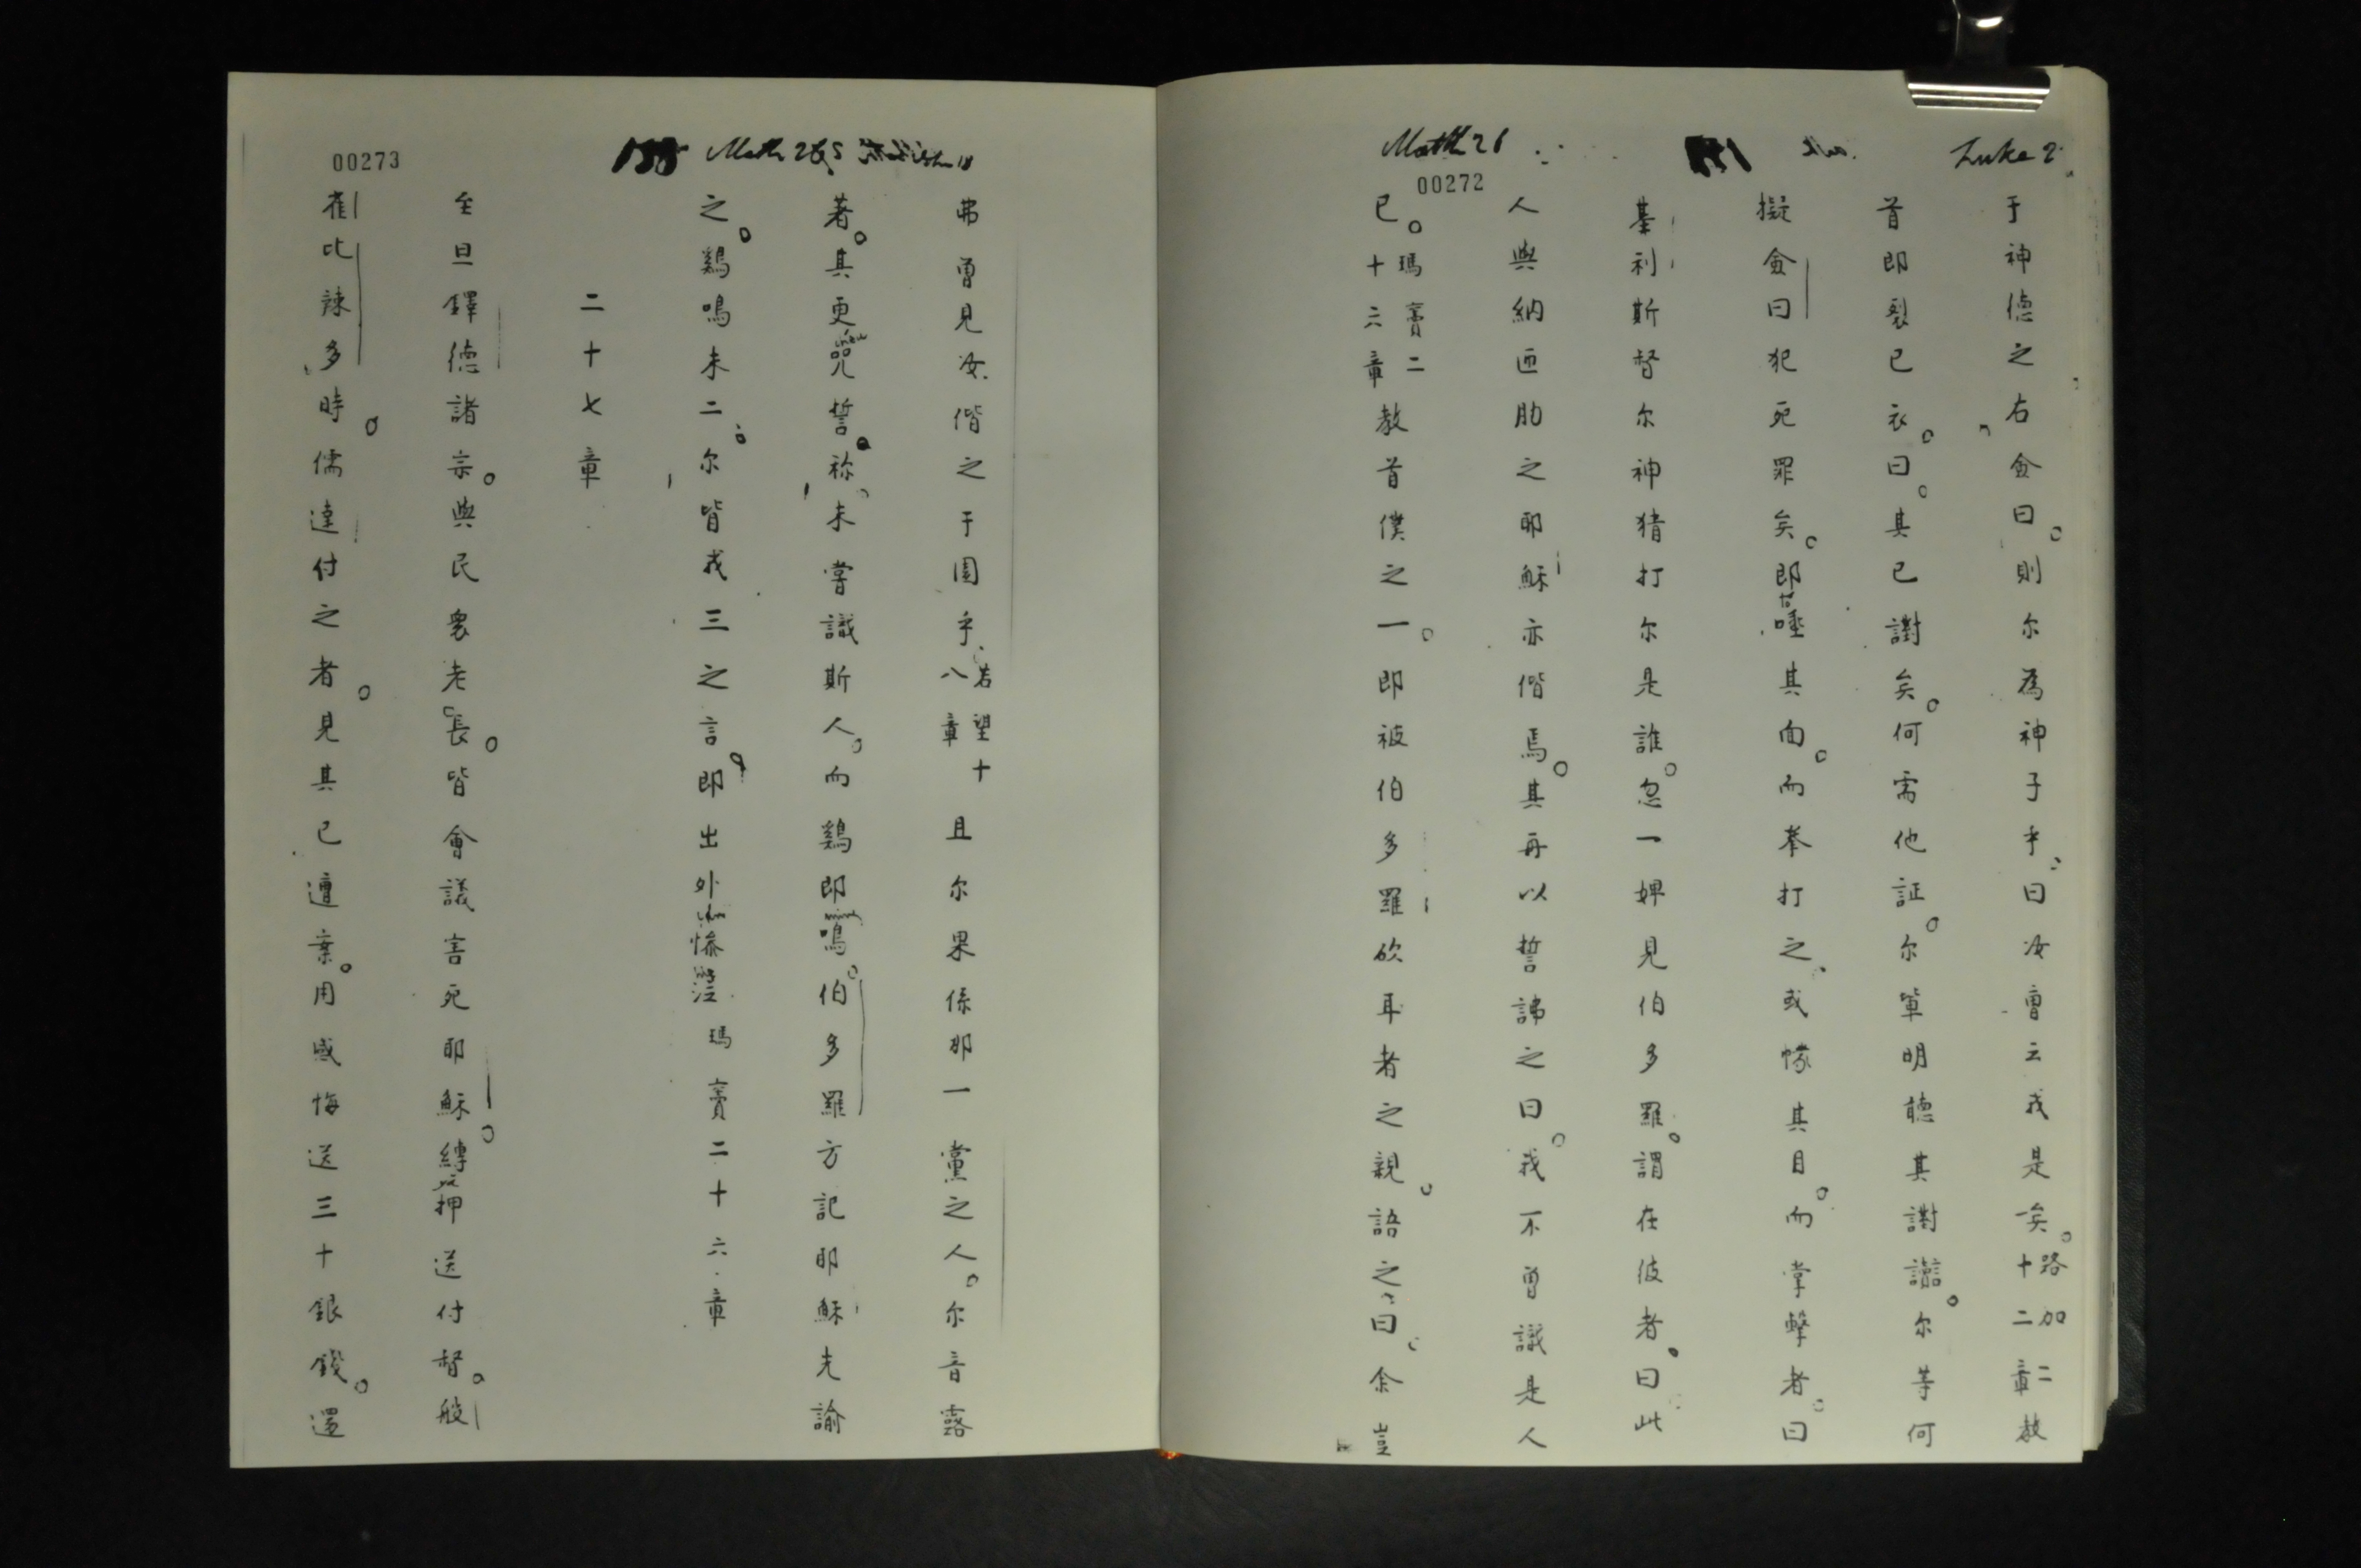 Matth 26
Luke 2
00272
于神德之右僉曰則尔為神子乎曰汝曹云我是矣路加二十二章教
首即裂已衣曰其已謝矣何需他証尔輩明聴其謝尔等何
擬僉曰犯死罪矣即唾其面而拳打之或幪其目而掌擊者曰
基利斯督尔神猜打尔是誰忽一婢見伯多羅謂在彼者曰此
人與納匝肋之耶穌亦偕焉其再以誓誶之曰我不曾識是人
已瑪竇二十六章教首僕之一即被伯多羅砍耳者之親語之曰余豈
00273
155 Math 26
弗曾見汝偕之于園乎若望十八章且尔果係那一黨之人尔音露
著其更咒誓祢未嘗識斯人而鷄即鳴伯多羅方記耶穌先諭
之鷄鳴未二尔皆戎三之言即出外慘瑪竇二十六章
二十七章
至旦鐸德諸宗與民衆老長皆會議害死耶穌縛押送付督般
雀比辣多時儒達付之者見其已遭棄用感悔送三十銀錢還